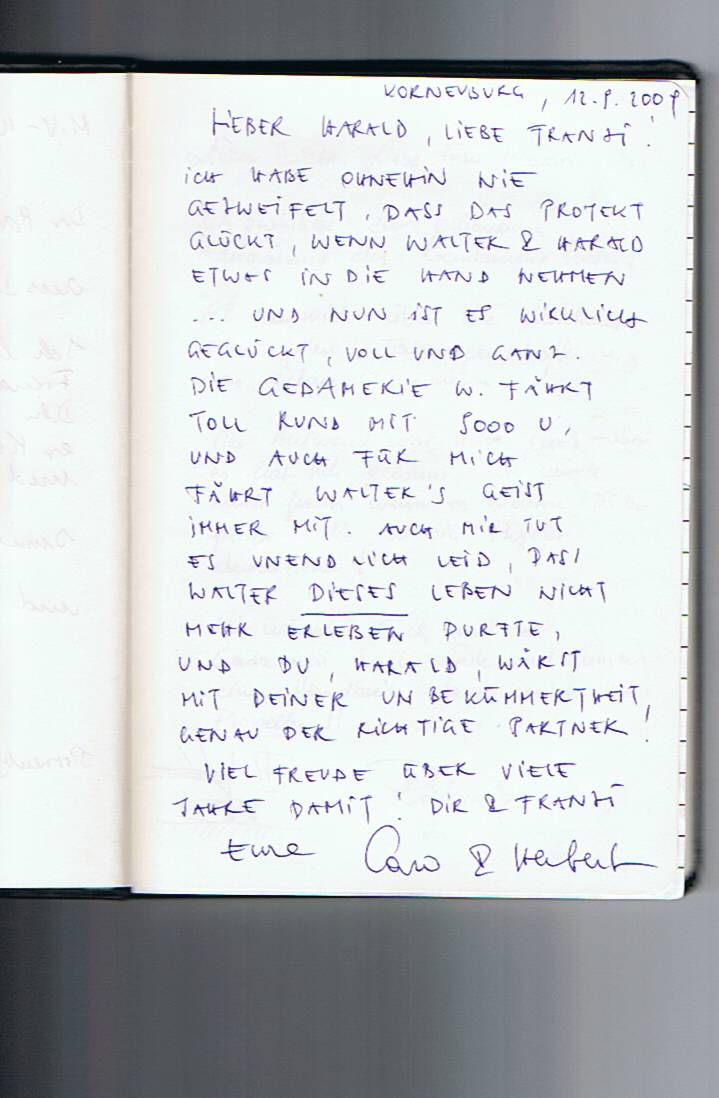 KORNEUBURG, 12.9.2009
LIEBER HARALD, LIEBE FRANZI!
ICH HABE OHNEHIN NIE
GEZWEIFELT, DASS DAS PROJEKT
GLÜCKT, WENN WALTER & HARALD
ETWAS IN DIE HAND NEHMEN
... UND NUN IST ES WIRKLICH
GEGLÜCKT, VOLL UND GANZ.
DIE W. FÄHRT
TOLL RUND MIT 5000 U,
UND AUCH FÜR MICH
FÄHRT WALTER'S GEIST
IMMER MIT. AUCH MIR TUT
ES UNENDLICH LEID, DASS
WALTER DIESES LEBEN NICHT
MEHR ERLEBEN DURFTE,
UND DU, HARALD, WÄRST
MIT DEINER UNBEKÜMMERTHEIT,
GENAU DER RICHTIGE PARTNER!
VIEL FREUDE ÜBER VIELE
JAHRE DAMIT! DIR & FRANZI
Eure Caro & Herbert